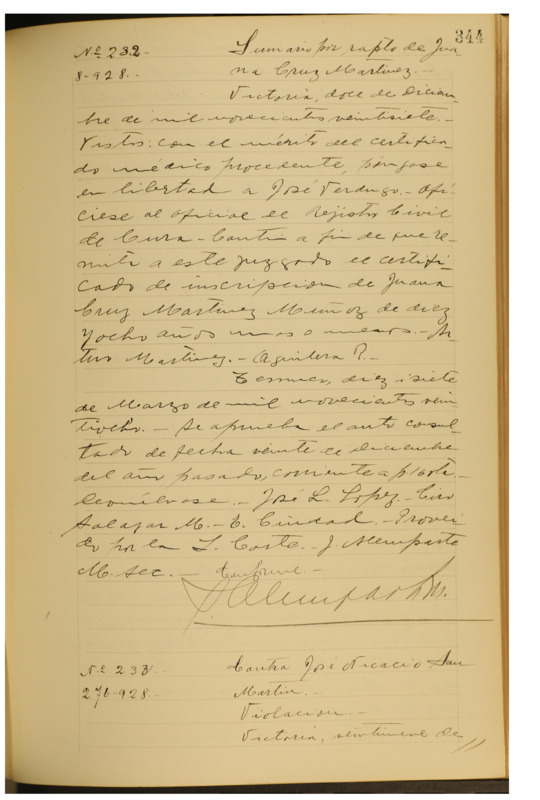 344
Nº 232.- Sumario por rapto de Jua
8-928.- na Cruz Martinez.-
Victoria, doce de Diciem-
bre de mil novecientos veintisiete.-
Vistos: con el mérito del certifica-
do médico procedente, póngase
en libertad a José Verdugo.- Ofí-
ciese al oficial del Rejistro Civil
de Cura-Cautin a fin de que re-
mita a este juzgado el certifi-
cado de inscripcion de Juana
Cruz Martinez Muñoz de diez
yocho años mas o menos.- Ar-
turo Martinez.- Aguilera R.-
Temuco, diez i siete
de Marzo de mil novecientos vein-
tiocho.- Se aprueba el auto consul-
tado de fecha veinte de Diciembre
del año pasado, corriente a f
Devuélvase.- José L. Lopez.- Ciro
Salazar M.- E. Ciudad.- Provei-
do por la I. Corte.- J. Alemparte
M. Sec.- Conforme.-
Nº 233.- Contra José Nicacio San
276-928.- Martin.-
Violacion.-
Victoria, veintinueve de